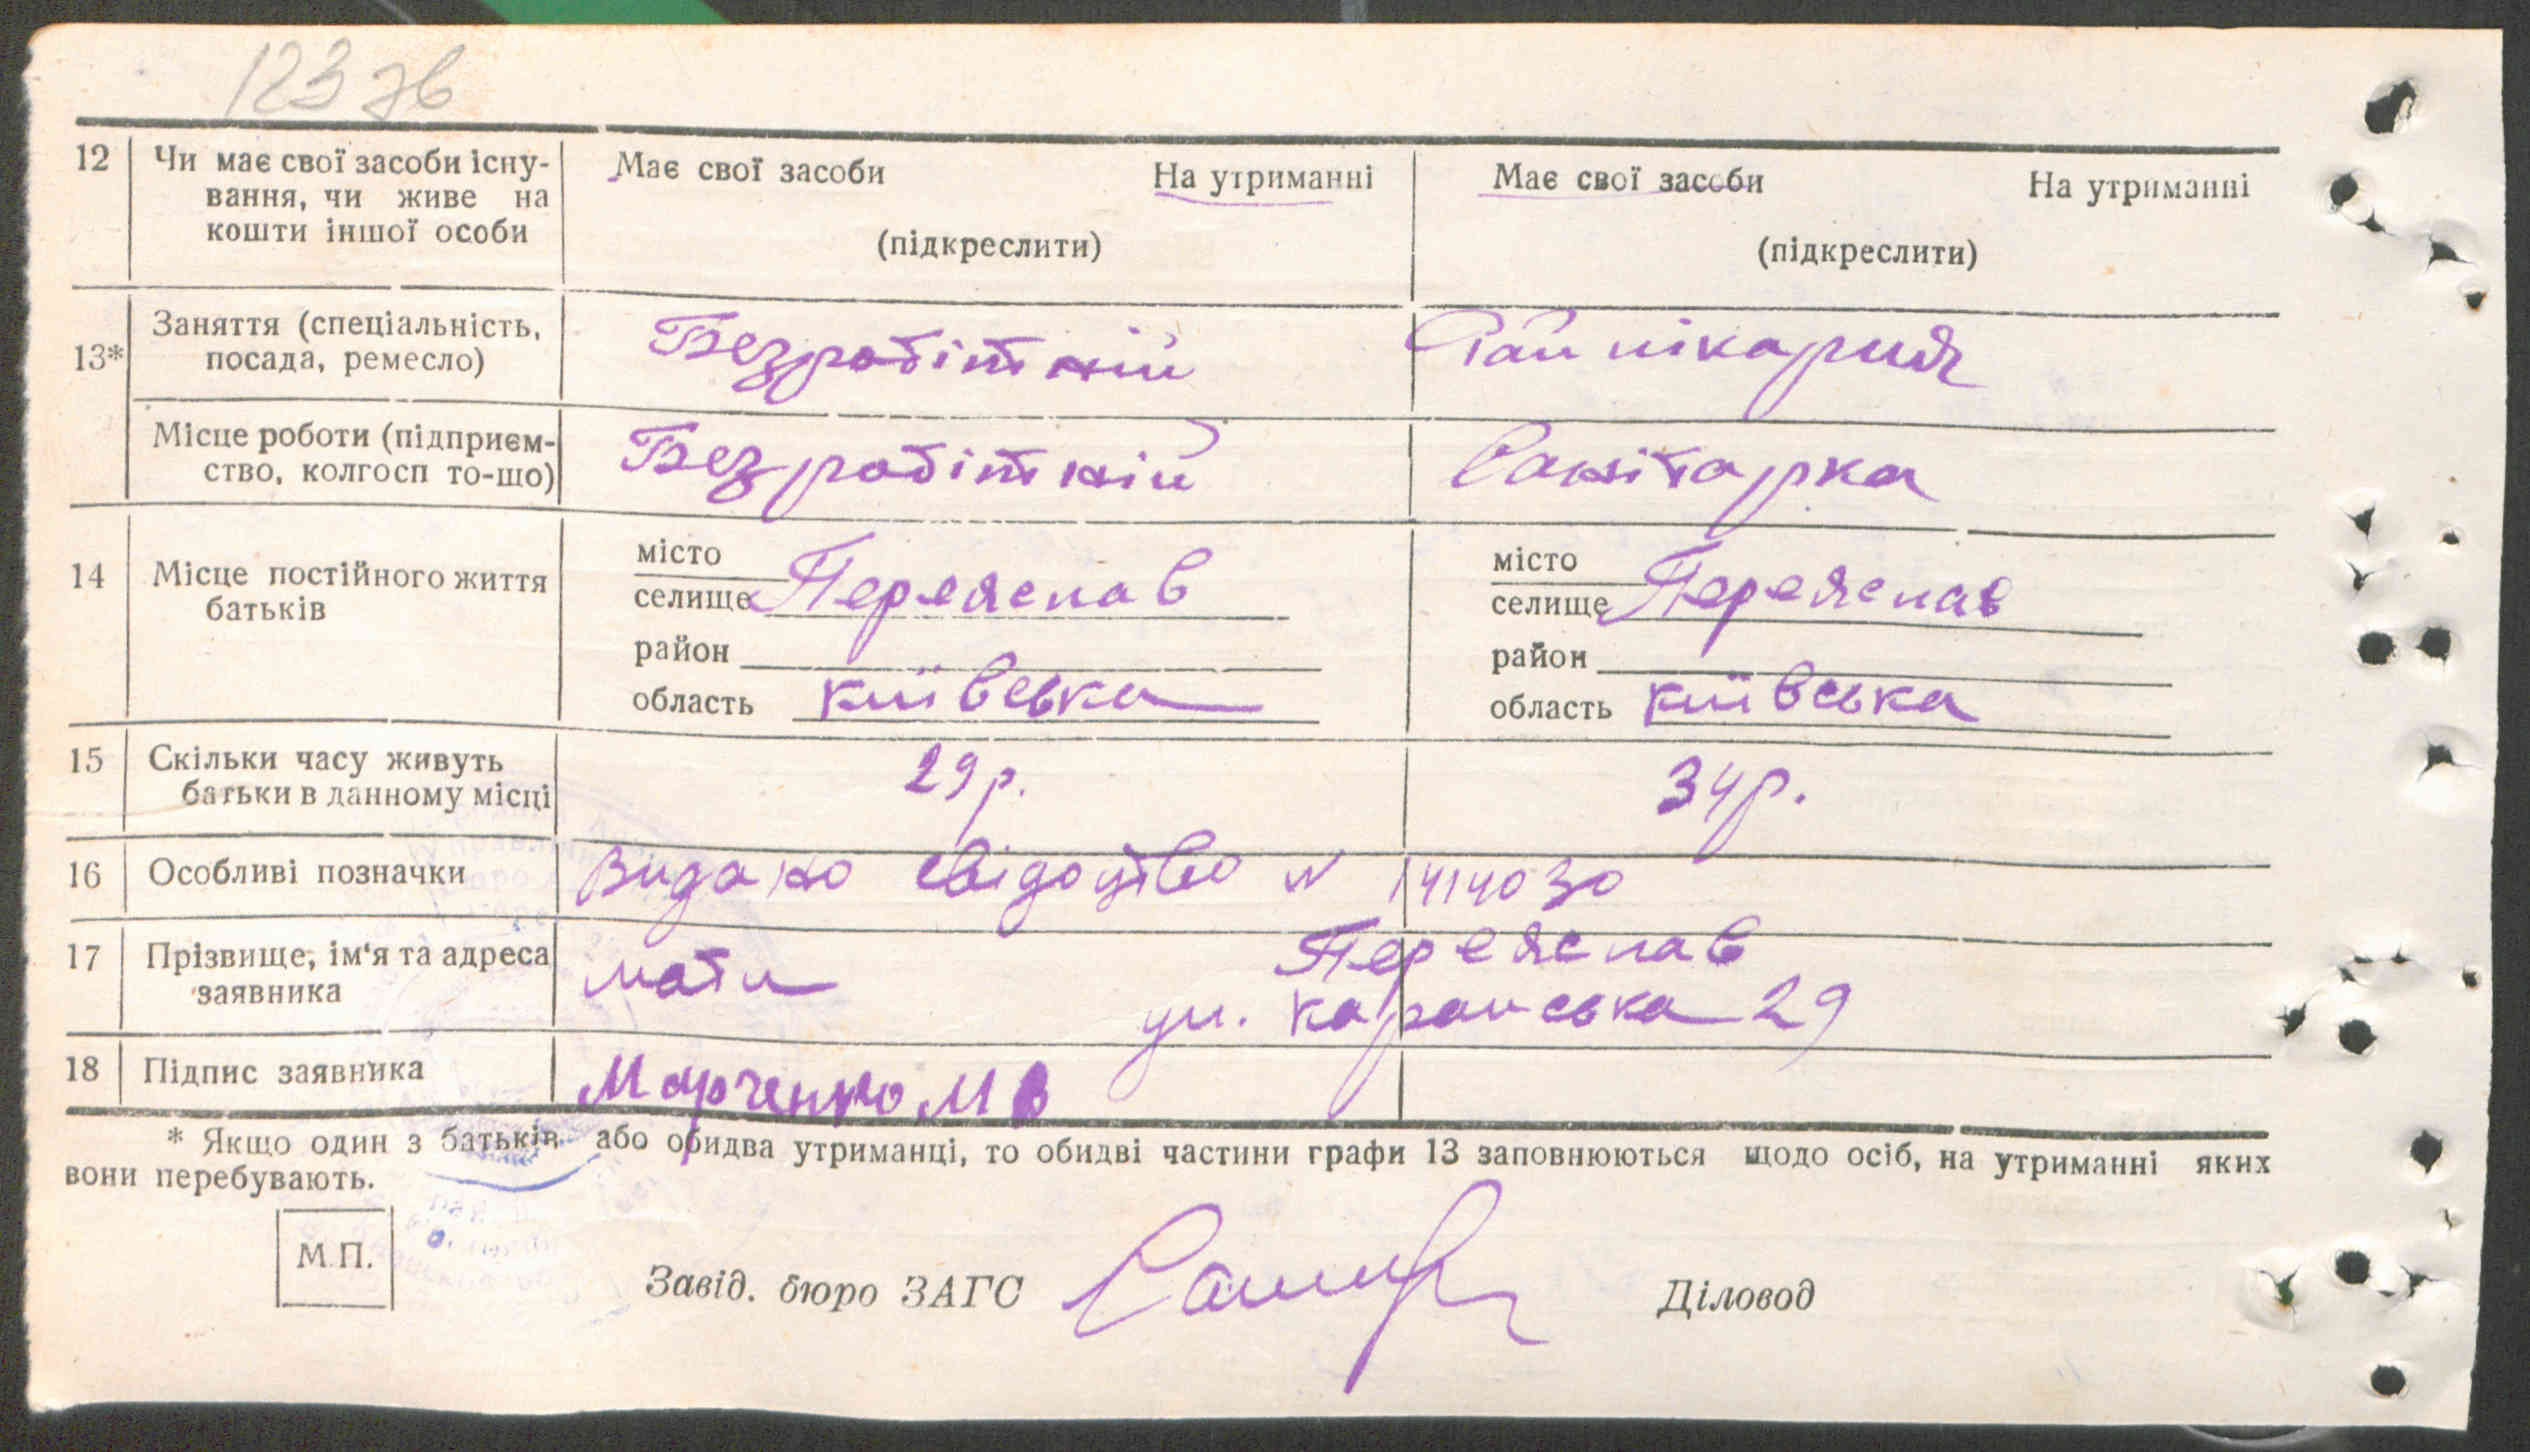 123 зв
12 Чи має свої засоби існу- Має свої засоби На утриманні Має свої засоби На утриманні
вання, чи живе на
кошти іншої особи (підкреслити) (підкреслити)
13* Заняття (спеціальність, Безробітній Райлікарня
посада, ремесло)
Місце роботи (підприєм- Безробітній Санітарка
ство, колгосп то-що)
14 Місце постійного життя місто Переяслав місто Переяслав
батьків селище селище
район район
область київська область київська
15 Скільки часу живуть 29 р. 34 р.
батьки в данному місці
16 Особливі позначки Видано свідоцтво N 1414030
17 Прізвище, ім'я та адреса мати Переяслав
заявника ул. каранська 29
18 Підпис заявника Марченко М В
* Якщо один з батьків або обидва утриманці, то обидві частини графи 13 заповнюються щодо осіб, на утриманні яких
вони перебувають.
М.П.
Завід. бюро ЗАГС Діловод